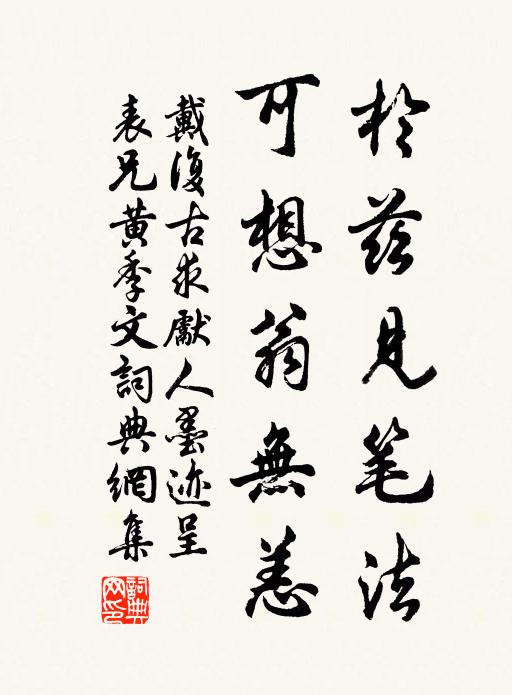 於茲見笔法
可想翁無恙
戴復古求獻人墨迹呈
表兄黄季文詞典網集
詞典网印